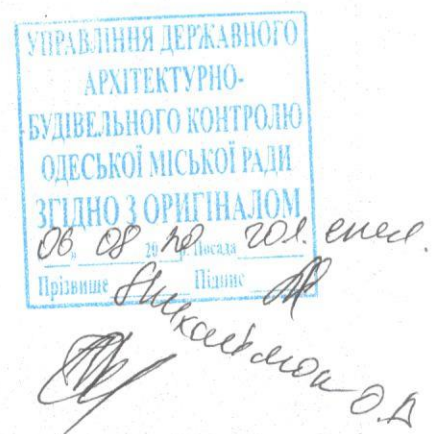 УПРАВЛІННЯ ДЕРЖАВНОГО
АРХІТЕКТУРНО-
БУДІВЕЛЬНОГО КОНТРОЛЮ
ОДЕСЬКОЇ МІСЬКОЇ РАДИ
ЗГІДНО З ОРИГІНАЛОМ
06 08 20 р. Посада гол. спец.
Прізвище Підпис
О.Д